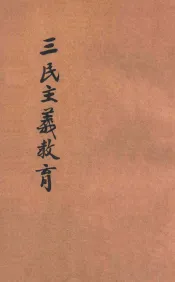 三民主義教育